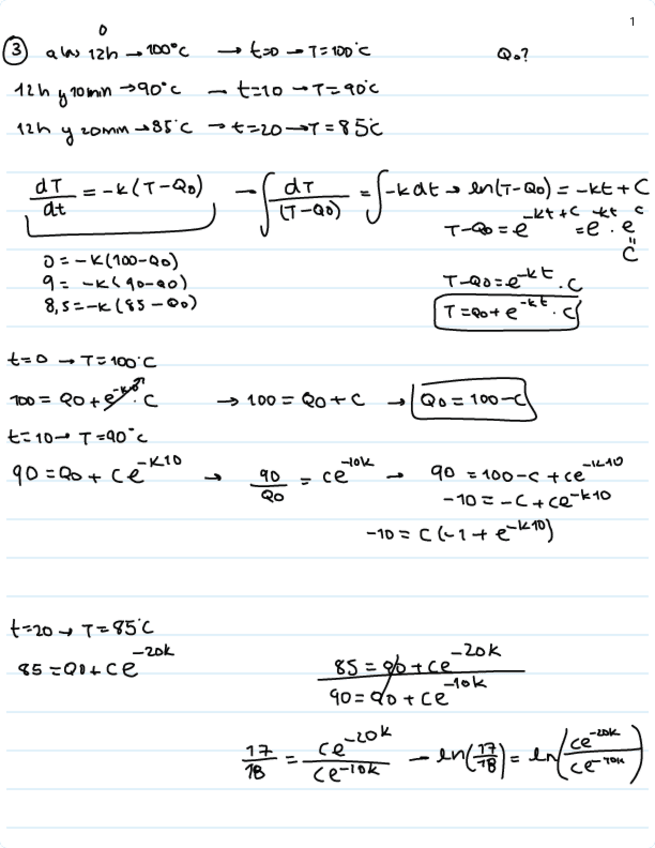 1
0
③ a las 12h → 100°C → t=0 → T=100°C Q₀?
12h y 10min → 90°C → t=10 → T=90°C
12h y 20min → 85°C → t=20 → T=85°C
dT/dt = -k(T-Q₀) → ∫ dT/(T-Q₀) = ∫ -k dt → ln(T-Q₀) = -kt + C
T-Q₀ = e^(-kt+C) = e^(-kt) · e^C
C
0 = -k(100-Q₀)
9 = -k(90-Q₀) T-Q₀ = e^(-kt) · C
8,5 = -k(85-Q₀) T = Q₀ + e^(-kt) · C
t=0 → T=100°C
100 = Q₀ + e^(-k·0) · C → 100 = Q₀ + C → Q₀ = 100-C
t=10 → T=90°C
90 = Q₀ + Ce^(-k10) → 90/Q₀ = Ce^(-10k) → 90 = 100-C + Ce^(-k10)
-10 = -C + Ce^(-k10)
-10 = C(-1 + e^(-k10))
t=20 → T=85°C
85 = Q₀ + Ce^(-20k) 85 = Q₀ + Ce^(-20k)
90 = Q₀ + Ce^(-10k)
17/18 = Ce^(-20k)/Ce^(-10k) → ln(17/18) = ln(Ce^(-20k)/Ce^(-10k))